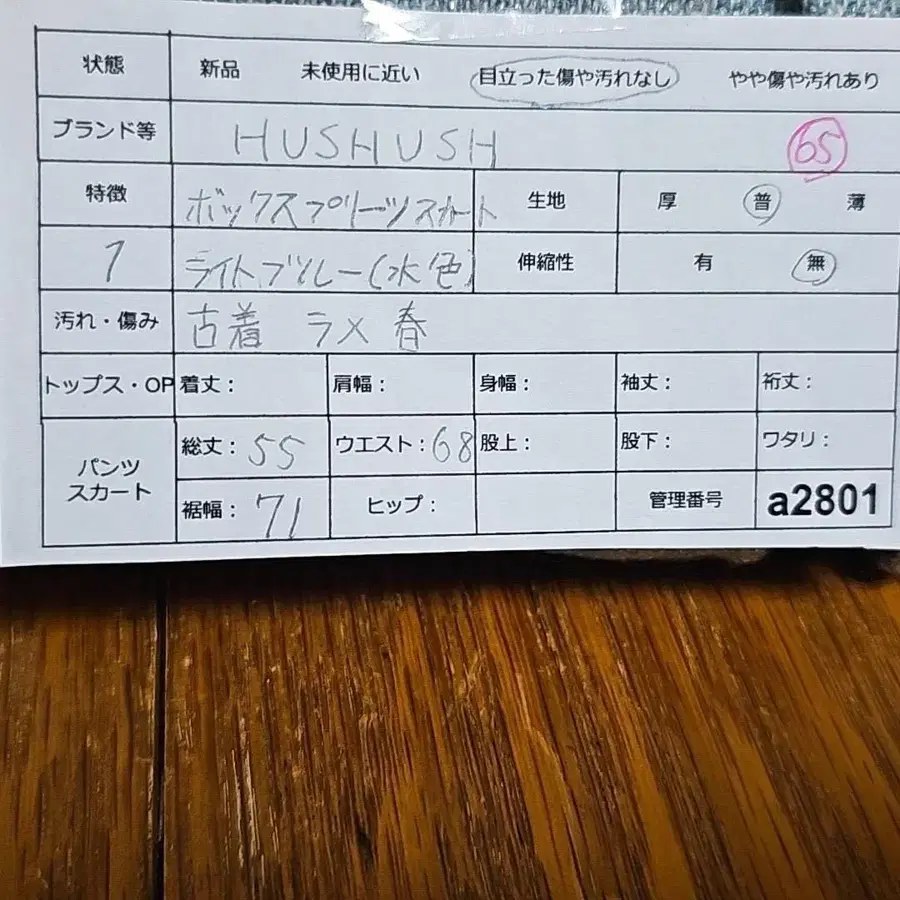 状態 新品 未使用に近い 目立った傷や汚れなし やや傷や汚れあり
ブランド等 HUSHUSH 65
特徴 ボックスプリーツスカート 生地 厚 普 薄
1 ライトブルー(水色) 伸縮性 有 無
汚れ・傷み 古着 ラメ 春
トップス・OP 着丈: 肩幅: 身幅: 袖丈: 裄丈:
パンツ スカート 総丈: 55 ウエスト: 68 股上: 股下: ワタリ:
裾幅: 71 ヒップ: 管理番号 a2801